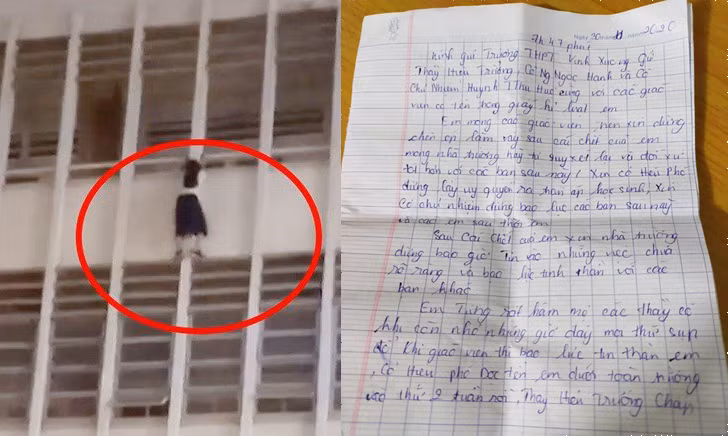 7h 47 phút
Kính gửi Trường THPT Vĩnh Xương
Thầy Hiệu Trưởng, Cô Ngọc Hạnh và Cô
Chủ Nhiệm Huỳnh cùng với các giáo
viên có tên trong giấy
Em mong các giáo viên xin đừng
chèn ép sau cái chết của em
mong nhà trường hãy suy xét lại và đối xử
tốt hơn với các bạn sau này! Xin cô hiệu phó
đừng lấy uy quyền ra học sinh, xin
cô chủ nhiệm đừng bạo lực các bạn sau này
Sau cái chết của em xin nhà trường
đừng bao giờ những việc chưa
rõ ràng và bạo lực tinh thần với các
bạn khác
Em từng rất hâm mộ các thầy cô
khi còn nhỏ nhưng giờ đây mọi thứ sụp
đổ khi giáo viên thì bạo lực tin thần em
, Cô hiệu phó Đọc tên em dưới toàn trường
vào thứ 2 tuần rồi, Thầy Hiệu Trưởng Chấp